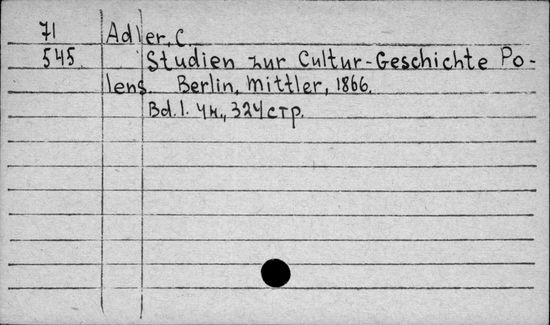 71 Adler, C.
545 Studien zur Cultur-Geschichte Po-
lens. Berlin, Mittler, 1866.
Bd. 1. 4н., 324 стр.